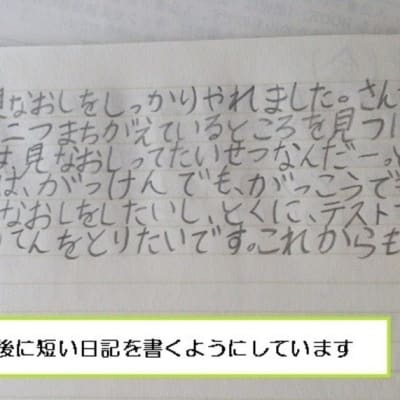 なおしをしっかりやれました。さん
二つまちがえているところを見つ
見なおしってたいせつなんだー。と
は、がっけんでも、がっこうで
なおしをしたいし、とくに、テストで
てんをとりたいです。これからも
後に短い日記を書くようにしています